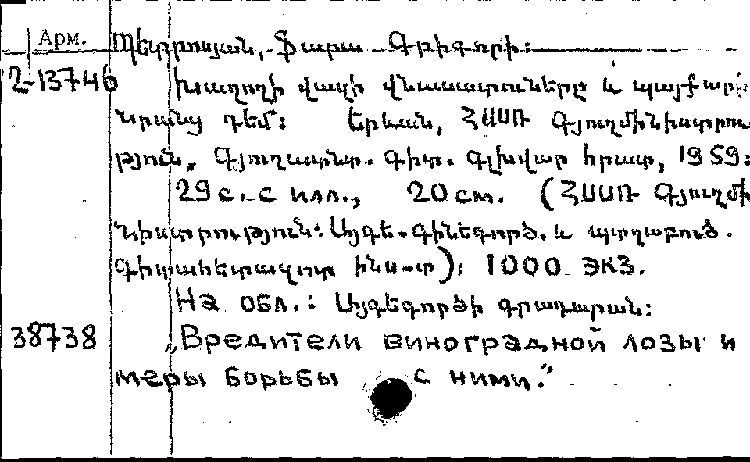 Արմ. Պետրոսյան, Ֆարա Գրիգորի:
2-13746 Խաղողի վազի վնասատուները և պայքարը
նրանց դեմ: Երևան, ՀՍՍՌ Գյուղմինիստրու
թյուն, Գյուղատնտ. գիտ. գլխվար հրատ, 1959:
29 с. с илл., 20 см. (ՀՍՍՌ Գյուղմի
նիստրություն: Այգե-գինեգործ. և պտղաբուծ.
գիտահետազոտ ինս-տ): 1000 экз.
На обл.: Այգեգործի գրադարան:
38738 „Вредители виноградной лозы и
меры борьбы с ними."